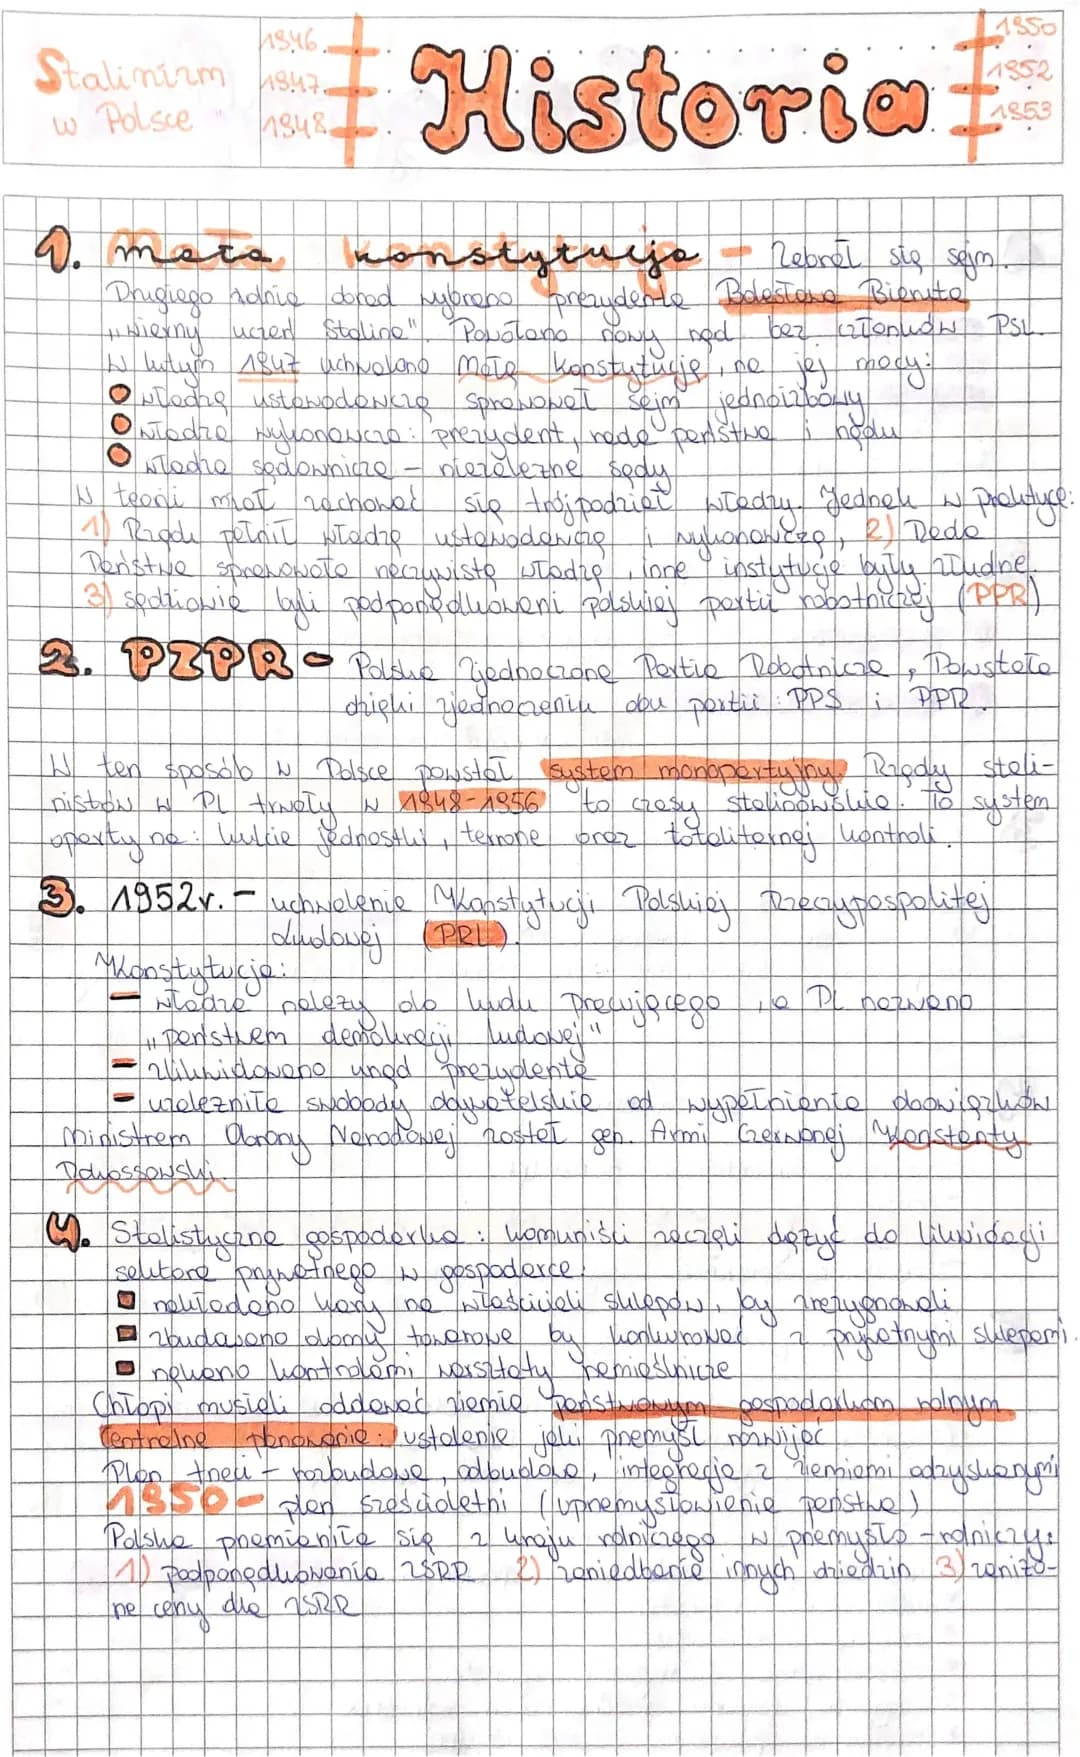 Stalinizm
w Polsce
1946
1947
1948
Historia
1950
1952
1953
1. Mała konstytucja - Zebrał się sejm.
Drugiego dnia obrad wybrano prezydenta Bolesława Bieruta
"wierny uczeń Stalina". Powołano nowy rząd bez członków PSL.
W lutym 1947 uchwalono Małą konstytucję, na jej mocy:
władzę ustawodawczą sprawował sejm jednoizbowy
władza wykonawcza: prezydent, rada państwa i rządu
władza sądownicza - niezależne sądy
W teorii miał zachować się trójpodział władzy. Jednak w praktyce:
1) Rząd pełnił władzę ustawodawczą i wykonawczą, 2) Rada
Państwa sprawowała rzeczywistą władzę, inne instytucje były złudne.
3) sędziowie byli podporządkowani polskiej partii robotniczej (PPR)
2. PZPR - Polska Zjednoczona Partia Robotnicza, Powstała
dzięki zjednoczeniu obu partii: PPS i PPR.
W ten sposób w Polsce powstał system monopartyjny. Rządy stali-
nistów w PL trwały w 1948-1956 to czasy stalinowskie. To system
oparty na: kulcie jednostki, terrorze oraz totalitarnej kontroli.
3. 1952r. - uchwalenie Konstytucji Polskiej Rzeczypospolitej
Ludowej (PRL).
Konstytucja:
- władza należy do ludu pracującego, a PL nazwano
"państwem demokracji ludowej"
- zlikwidowano urząd prezydenta
- uzależniła swobody obywatelskie od wypełnienia obowiązków
Ministrem Obrony Narodowej został gen. Armi Czerwonej Konstanty
Rokossowski
4. Stalistyczna gospodarka: komuniści zaczęli dążyć do likwidacji
sektora prywatnego w gospodarce:
nakładano kary na właścicieli sklepów, by zrezygnowali
zbudowano domy towarowe by konkurować z prywatnymi sklepami.
nękano kontrolami warsztaty rzemieślnicze
Chłopi musieli oddawać ziemię państwowym gospodarkom rolnym
Centralne planowanie: ustalenie jaki przemysł rozwijać
Plan trzeci - rozbudowa, odbudowa, integracja z ziemiami odzyskanymi
1950 - plan sześcioletni (uprzemysłowienie państwa)
Polska przemieniła się z kraju rolniczego w przemysło-rolniczy:
1) podporządkowania ZSRR 2) zaniedbanie innych dziedzin 3) zaniżo-
ne ceny dla ZSRR